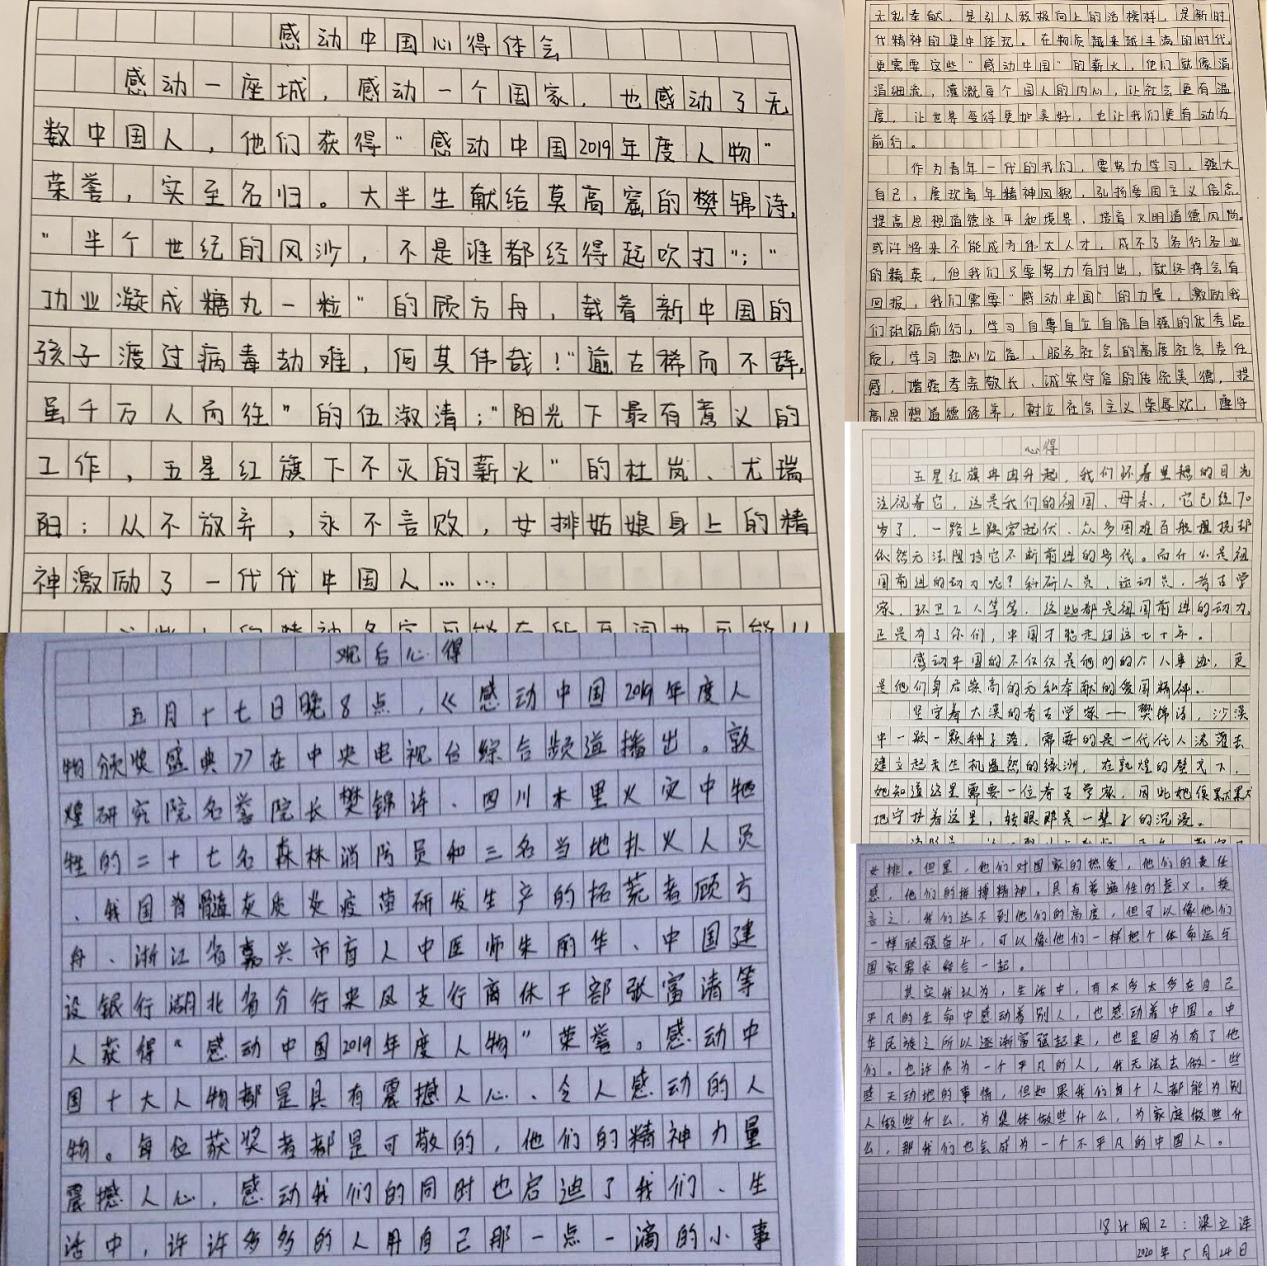 感动中国心得体会
感动一座城，感动一个国家，也感动了无
数中国人，他们获得“感动中国2019年度人物”
荣誉，实至名归。大半生献给莫高窟的樊锦诗，
“半个世纪的风沙，不是谁都经得起吹打”；“
功业凝成糖丸一粒”的顾方舟，载着新中国的
孩子渡过病毒劫难，何其伟哉！“逾古稀而不辞，
虽千万人向往”的伍淑清；“阳光下最有意义的
工作，五星红旗下不灭的薪火”的杜岚、尤瑞
阳；从不放弃，永不言败，女排姑娘身上的精
神激励了一代代中国人……
观后心得
五月十七日晚8点，《感动中国2019年度人
物颁奖盛典》在中央电视台综合频道播出。敦
煌研究院名誉院长樊锦诗、四川木里火灾中牺
牲的二十七名森林消防员和三名当地扑火人员
、我国脊髓灰质炎疫苗研发生产的拓荒者顾方
舟、浙江省嘉兴市盲人中医师朱丽华、中国建
设银行湖北省分行来凤支行离休干部张富清等
人获得“感动中国2019年度人物”荣誉。感动中
国十大人物都是具有震撼人心、令人感动的人
物。每位获奖者都是可敬的，他们的精神力量
震撼人心，感动我们的同时也启迪了我们、生
活中，许许多多的人用自己那一点一滴的小事
无私奉献，是引人积极向上的活榜样，是新时
代精神的集中体现。在物质越来越丰满的时代，
更需要这些“感动中国”的薪火，他们就像涓
涓细流，灌溉每个国人的内心，让社会更有温
度，让世界变得更加美好，也让我们更有动力
前行。
作为青年一代的我们，要努力学习，强大
自己，展现青年精神风貌，弘扬爱国主义信念，
提高思想道德水平和境界，培育文明道德风尚。
或许将来不能成为伟大人才，成不了各行各业
的精英，但我们只要努力有付出，就终将会有
回报，我们需要“感动中国”的力量，激励我
们砥砺前行，学习自尊自立自信自强的优秀品
质，学习热心公益、服务社会的高度社会责任
感，增强孝亲敬长、诚实守信的传统美德，提
高思想道德修养，树立社会主义荣辱观，遵守
心得
五星红旗冉冉升起，我们怀着里想的目光
注视着它，这是我们的祖国、母亲，它已经70
岁了，一路上跌宕起伏、众多困难百般阻挠却
依然无法阻挡它不断前进的步伐。而什么是祖
国前进的动力呢？科研人员、运动员、考古学
家、环卫工人等等，这些都是祖国前进的动力，
正是有了你们，中国才能走过这七十年。
感动中国的不仅仅是他们的个人事迹，更
是他们身后崇高的无私奉献的爱国精神。
坚守着大漠的考古学家——樊锦诗，沙漠
中一颗一颗种子落，需要的是一代代人浇灌去
建立起天生机盎然的绿洲，在敦煌的壁画下，
她知道这里需要一位考古学家，因此她便默默
地守护着这里，转眼那是一辈子的沉浸。
女排。但是，他们对国家的热爱，他们的责任
感，他们的拼搏精神，具有着通性的意义。换
言之，我们达不到他们的高度，但可以像他们
一样顽强奋斗，可以像他们一样把个体命运与
国家需求结合一起。
其实我认为，生活中，有太多太多在自己
平凡的生命中感动着别人，也感动着中国。中
华民族之所以逐渐富强起来，也是因为有了他
们。也许作为一个平凡的人，我无法去做一些
惊天动地的事情，但如果我们每个人都能为别
人做些什么，为集体做些什么，为家庭做些什
么，那我们也会成为一个不平凡的中国人。
18计网2：梁立泽
2020年5月24日